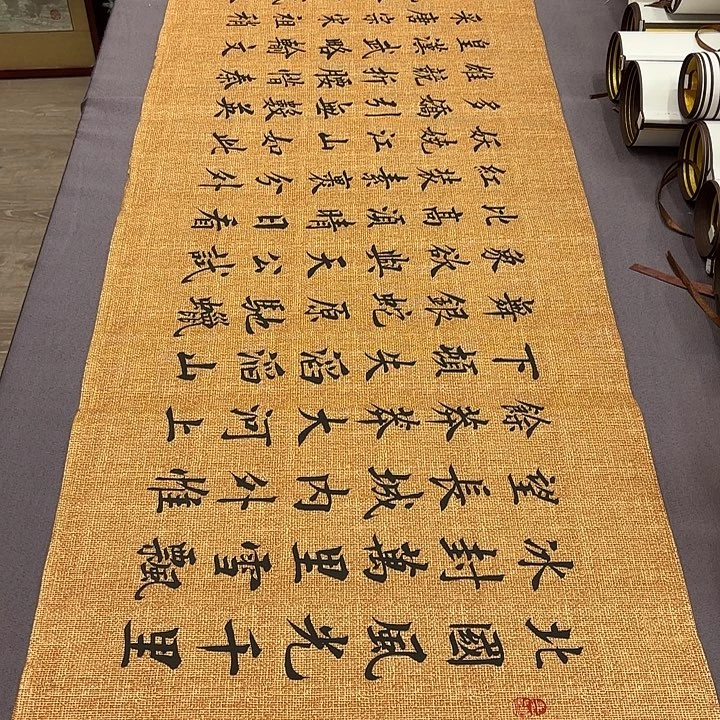 北國風光千里
冰封萬里雪飄
望長城內外惟
餘莽莽大河上
下頓失滔滔山
舞銀蛇原馳蠟
象欲與天公試
比高須晴日看
紅裝素裹分外
妖嬈江山如此
多嬌引無數英
雄競折腰惜秦
皇漢武略輸文
采唐宗宋祖稍